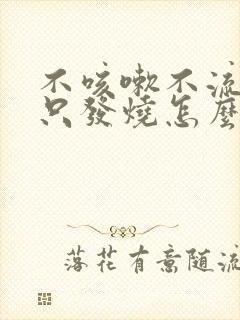 不咳嗽不流
只發燒怎麼
落花有意随流